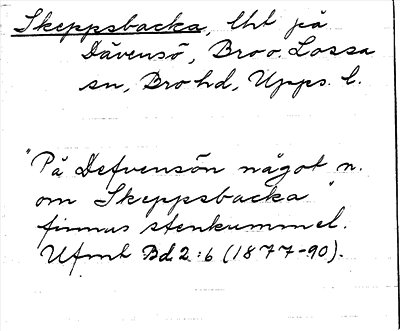 Skeppsbacka, lht på
Dävensö, Bro o. Lossa
sn, Bro hd, Upps. l.
"På Defvensön något n.
om Skeppsbacka
finnas stenkummel."
Ufmt Bd 2:6 (1877-90).